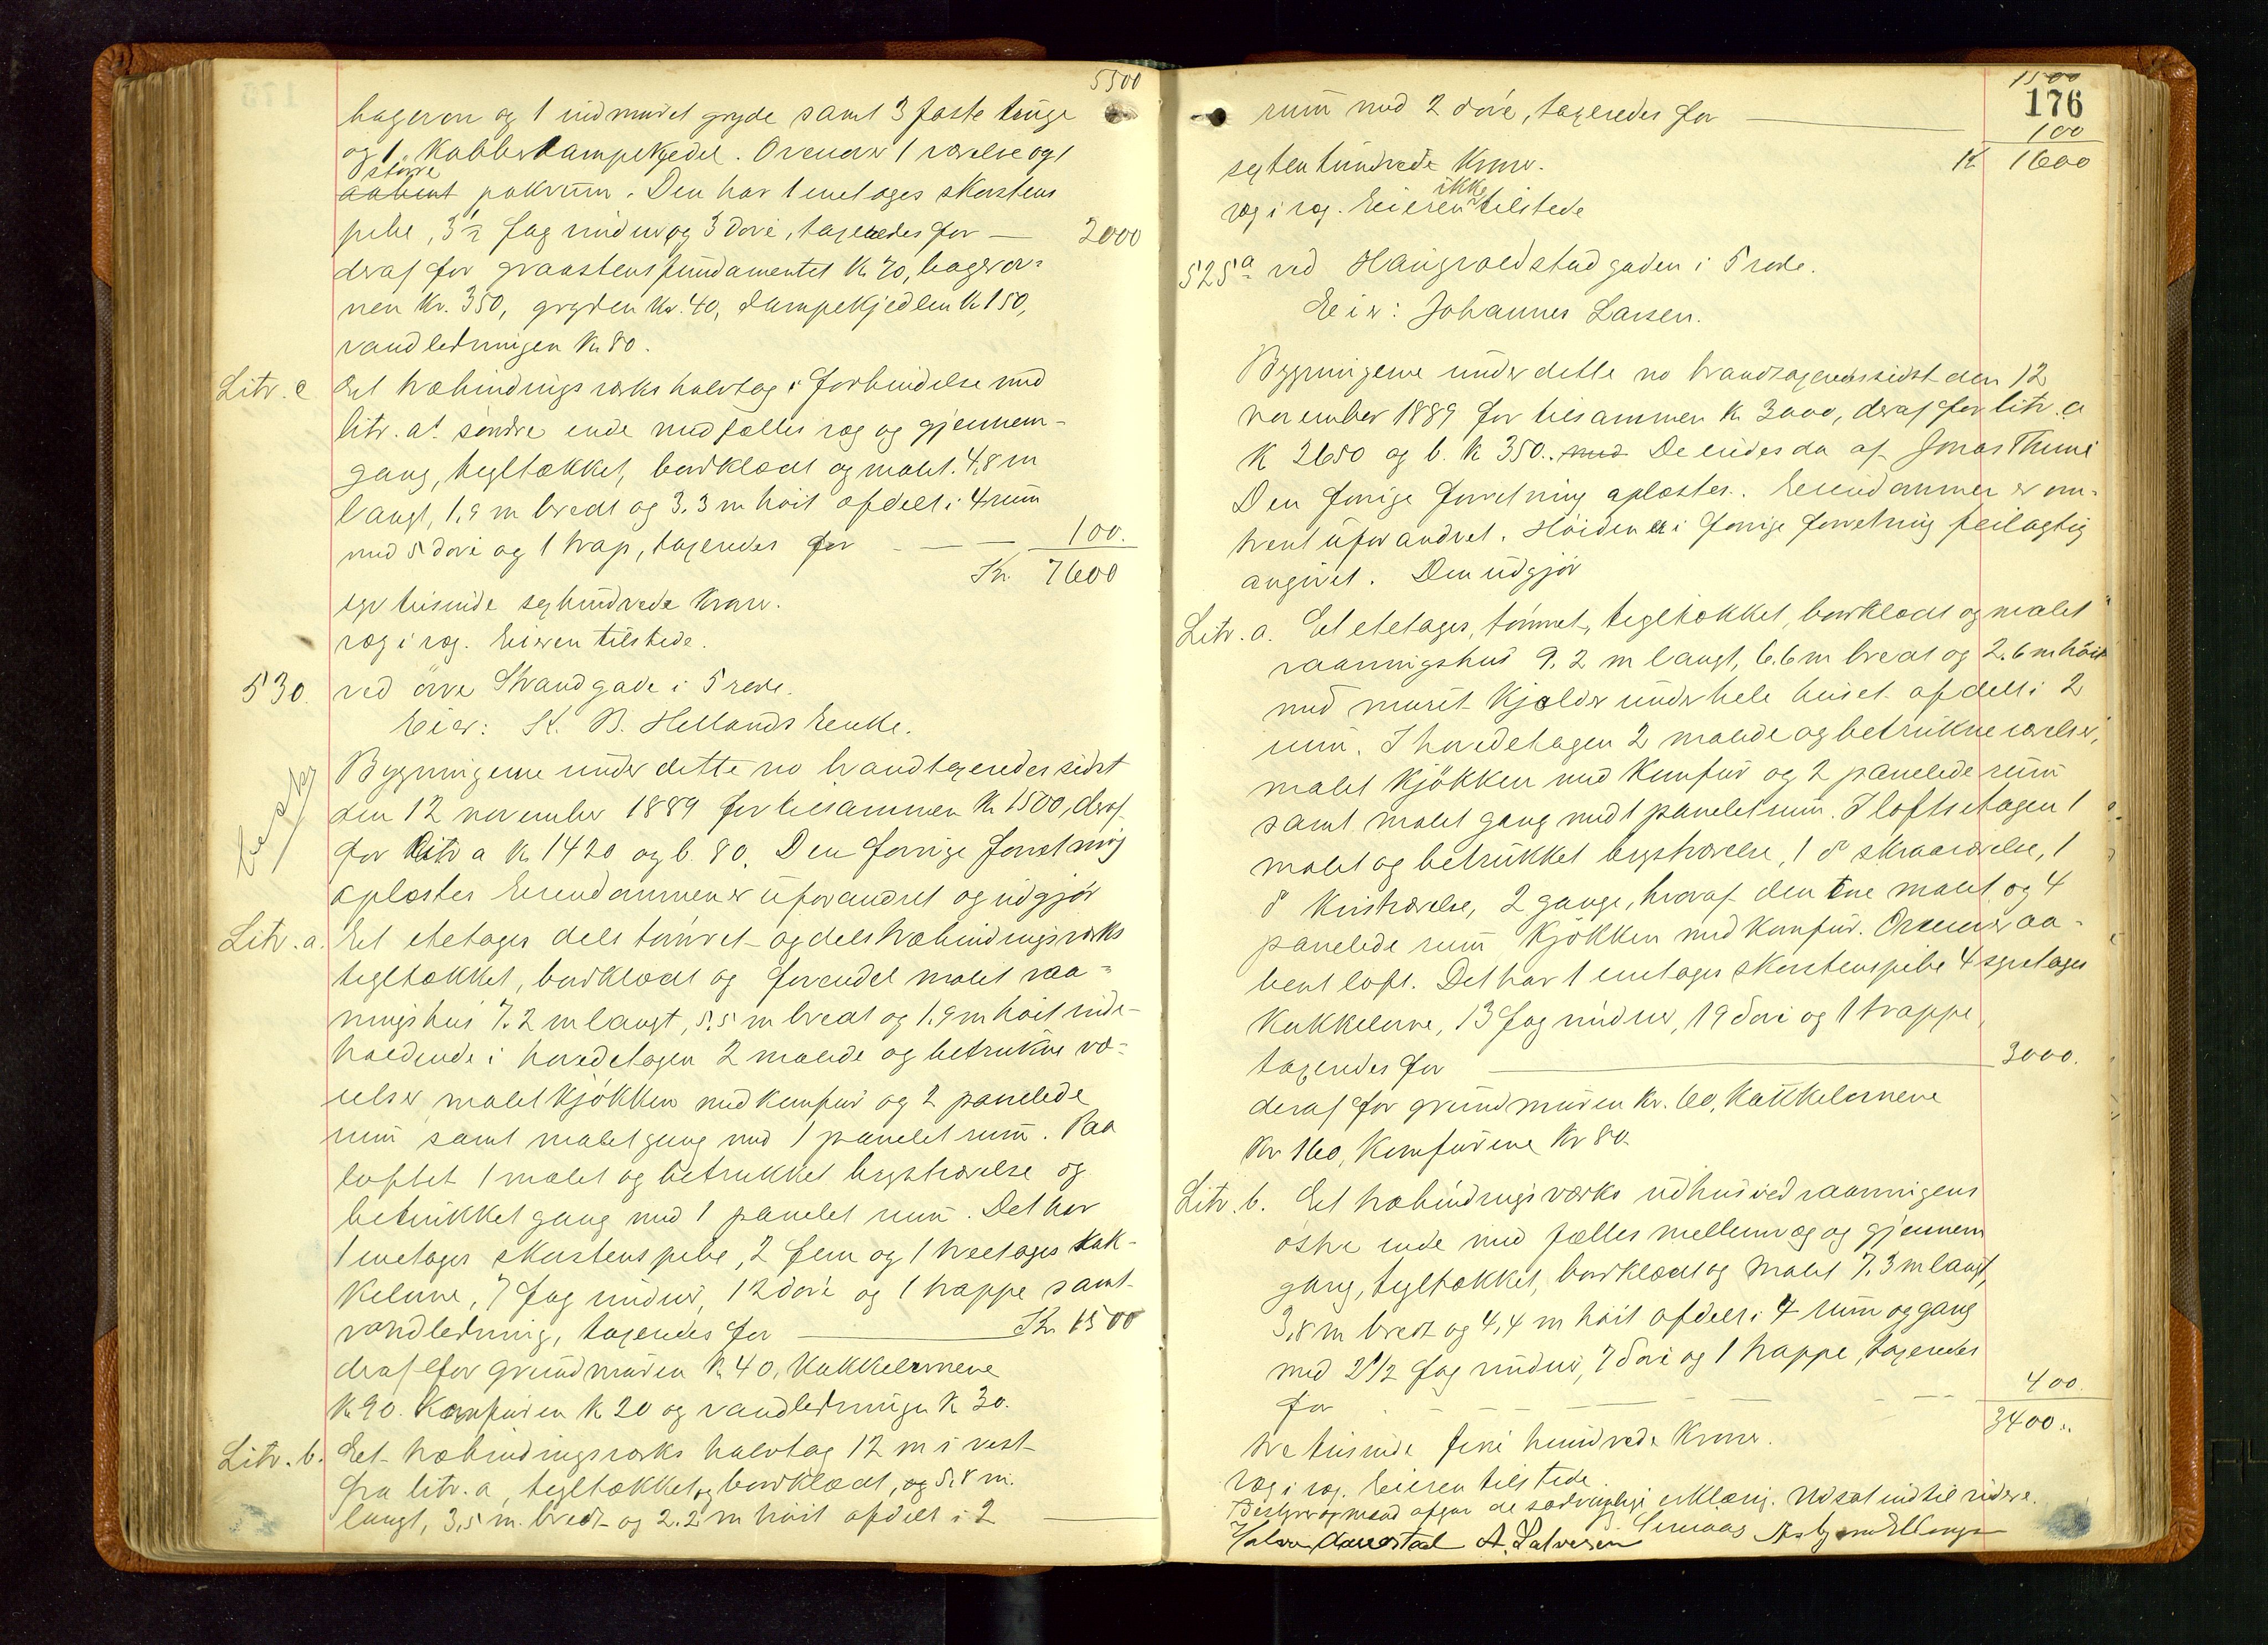 5500
bagerovn og 1 indmuret gryde samt 3 faste tönge
og 1 Kobberdampekjedel. Ovenover 1 værelse og 1
större
aabent pakrum. Den har 1 enetages skorstens
pibe, 3½ fag vinduer og 3 döre, taxeredes for — 2000
deraf for graastensfundamentet Kr 70, bagerov=
nen Kr. 350, gryden Kr. 40, dampekjedlen Kr 150,
vandledningen Kr 80.
Litr. c Et træbindingsværks halvtag i forbindelse med
litr. a's söndre ende med fælles væg og gjennem-
gang, tegltækket, bordklædt og malet. 4,8 m
langt, 1,9 m bredt og 3.3 m höit afdelt i 4 rum
med 5 döre og 1 trap, taxeredes for — — — 100.
Kr. 7600
syv tusinde sexhundrede Kroner.
væg i væg. Eieren tilstede.
530. ved övre Strandgade i 5 rode.
Eier: K. B. Hellands Enke.
Bygningerne under dette no brandtaxeredes sidst
den 12 november 1889 for tilsammen Kr 1500, deraf
for Litr a Kr 1420 og b. 80. Den forrige forretning
oplæstes Eiendommen er uforandret og udgjör
Litr. a. Et etetages dels tömret- og dels træbindingsværks
tegltækket, bordklædt og forendel malet vaa=
ningshus 7.2 m langt, 5,5 m bredt og 1,9 m höit inde-
holdende i hovedetagen 2 malede og betrukne væ=
relser malet kjökken med komfur og 2 panelede
rum samt malet gang med 1 panelet rum. Paa
loftet 1 malet og betrukket kvistværelse og
betrukket gang med 1 panelet rum. Det har
1 enetages skorstenspibe, 2 fem og 1 treetages kak-
kelovne, 7 fag vinduer, 12 döre og 1 trappe samt
vandledning, taxeredes for — Kr. 1500
deraf for grundmuren Kr 40, Kakkelovnene
Kr 90. Komfuren Kr 20 og vandledningen Kr 30.
Litr. b. Et træbindingsværks halvtag 12 m i vest
fra litr. a, tegltækket, og bordklædt, og 5,8 m.
langt, 3,5 m. bredt og 2.2 m höit afdelt i 2
1500
176
rum med 2 döre, taxeredes for — 100
sexten hundrede Kroner. Kr 1600
væg i væg. Eieren ikke tilstede
525a ved Haugvoldstadgaden i 5 rode.
Eier: Johannes Larsen.
Bygningerne under dette no brandtaxeredes sidst den 12
november 1889 for tilsammen Kr 3000, deraf for litr. a
Kr 2650 og b. Kr 350. med De eiedes da af Jonas Thime
Den forrige forretning oplæstes. Eiendommen er om-
trent uforandret. Höiden er i forrige forretning feilagtig
angivet. Den udgjör
Litr. a. Et etetages, tömret, tegltækket, bordklædt og malet
vaaningshus 9.2 m langt, 6.6 m bredt og 2.6 m höit
med muret kjælder under hele huset afdelt i 2
rum. I hovedetagen 2 malede og betrukne værelser,
malet kjökken med komfur og 2 panelede rum
samt malet gang med 1 panelet rum. I loftsetagen 1
malet og betrukket kvistværelse, 1 do skraaværelse, 1
do Kvistværelse, 2 gange, hvoraf den ene malet og 4
panelede rum kjökken med komfur. Ovenover aa-
bent loft. Det har 1 enetages skorstenspibe 4 syvetages
Kakkelovne, 13 fag vinduer, 19 döre og 1 trappe,
taxeredes for — 3000.
deraf for grundmuren Kr. 60, Kakkelovnene
Kr 160, Komfurene Kr 80.
Litr. b. Et træbindingsværks udhus ved vaaningens
östre ende med fælles mellemvæg og gjennem
gang, tegltækket, bordklædt og malet 7.3 m langt,
3,8 m bredt og 4,4 m höit afdelt i 4 rum og gang
med 2½ fag vinduer, 7 döre og 1 trappe, taxeredes
for — 400.
3400.
tre tusinde fire hundrede Kroner.
væg i væg. Eieren tilstede.
Bestyrer og mænd afgav de sædvanlige erklæring. Udsat indtil videre.
A. Salvesen